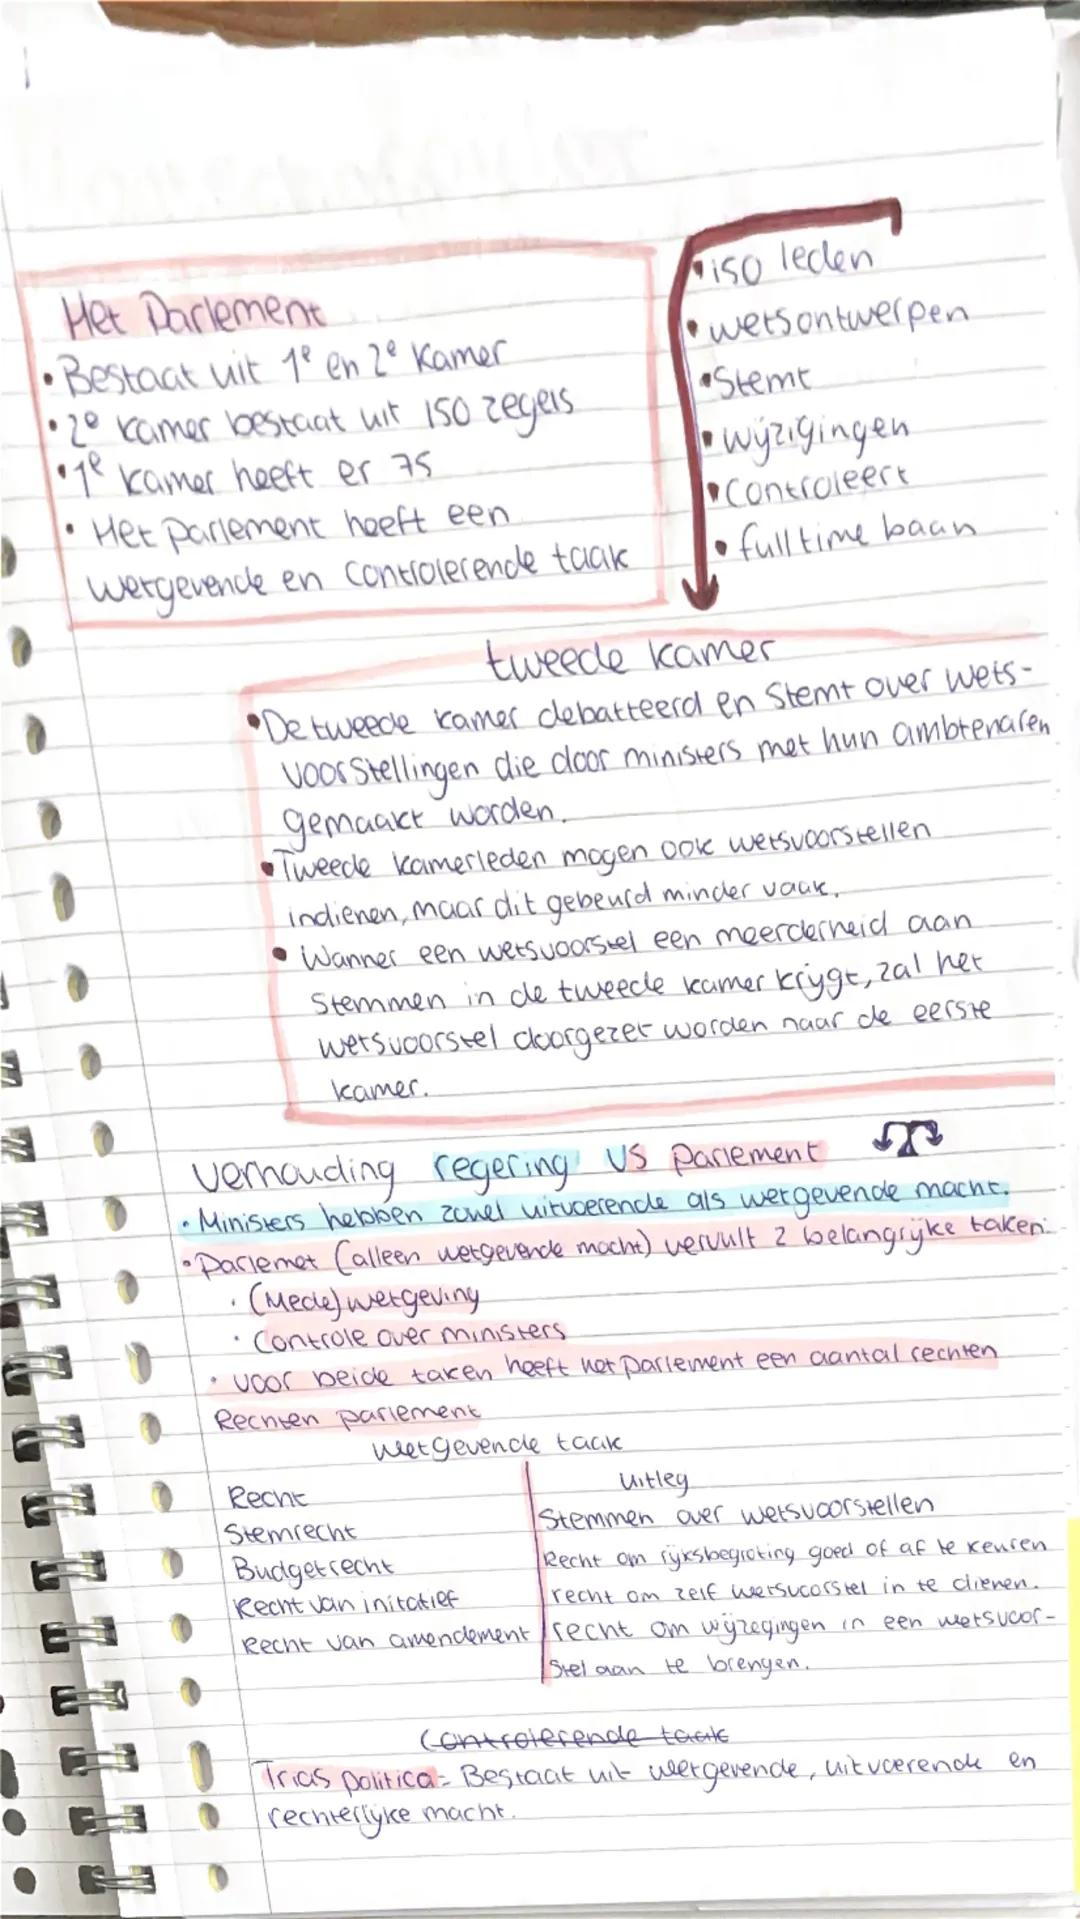 Het Parlement
• Bestaat uit 1e en 2e Kamer
• 2e Kamer bestaat uit 150 zegels
• 1e Kamer heeft er 75
• Het parlement heeft een
wetgevende en controlerende taak
• 150 leden
• wetsontwerpen
• Stemt
• wijzigingen
• Controleert
• full time baan
tweede kamer
• De tweede kamer debatteerd en Stemt over wets-
voorstellingen die door ministers met hun ambtenaren
gemaakt worden.
• Tweede kamerleden mogen ook wetsvoorstellen
indienen, maar dit gebeurd minder vaak.
• Wanner een wetsvoorstel een meerderheid aan
Stemmen in de tweede kamer krijgt, zal het
wetsvoorstel doorgezet worden naar de eerste
kamer.
verhouding regering VS parlement
• Ministers hebben zowel uitvoerende als wetgevende macht.
• Parlemet (alleen wetgevende macht) vervult 2 belangrijke taken:
• (Mede) wetgeving
• Controle over ministers
• voor beide taken heeft het parlement een aantal rechten
Rechten parlement
wetgevende taak
Recht uitleg
Stemrecht Stemmen over wetsvoorstellen
Budgetrecht Recht om rijksbegroting goed of af te keuren
Recht van initatief recht om zelf wetsvoorstel in te dienen.
Recht van amendement recht om wijzegingen in een wetsvoor-
stel aan te brengen.
Controlerende taak
Trias politica = Bestaat uit wetgevende, uitvoerende en
rechterlijke macht.